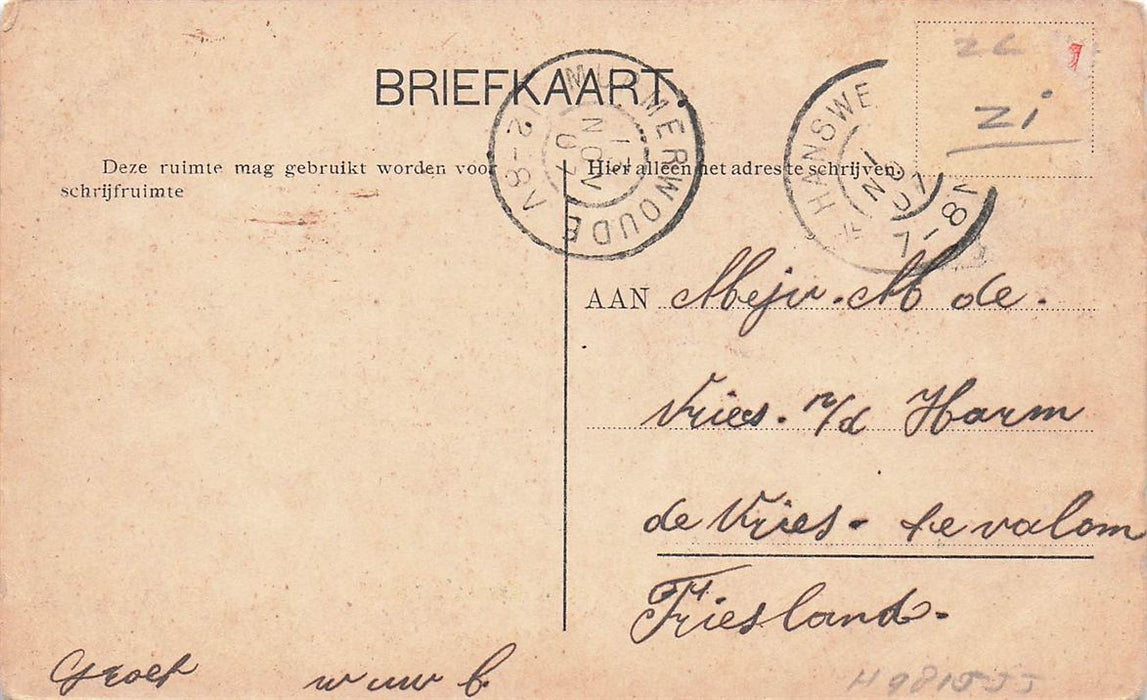 BRIEFKAART.
Deze ruimte mag gebruikt worden voor
schrijfruimte
Hier alleen het adres te schrijven.
MURMERWOUDE
1 NOV 07
2-8 V
HANSWE
1 NOV 07
7-8 V
ZL
Zi
AAN Mejv. M de.
Vries. n/d Harm
de Vries. te valom
Friesland.
Groet w uw b.